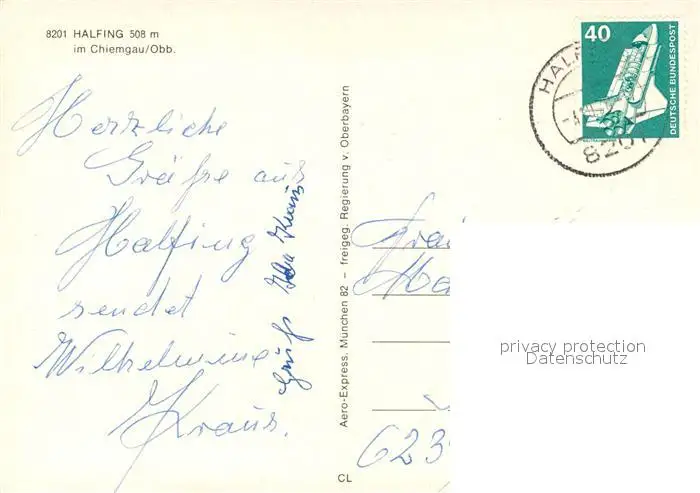 8201 HALFING 508 m
im Chiemgau/Obb.
Herzliche
Grüße aus
Halfing
sendet
Wilhelmine
Kraus.
Gruß Ida Kraus
Aero-Express. München 82 – freigeg. Regierung v. Oberbayern
CL
40
DEUTSCHE BUNDESPOST
HALF
8201
privacy protection
Datenschutz